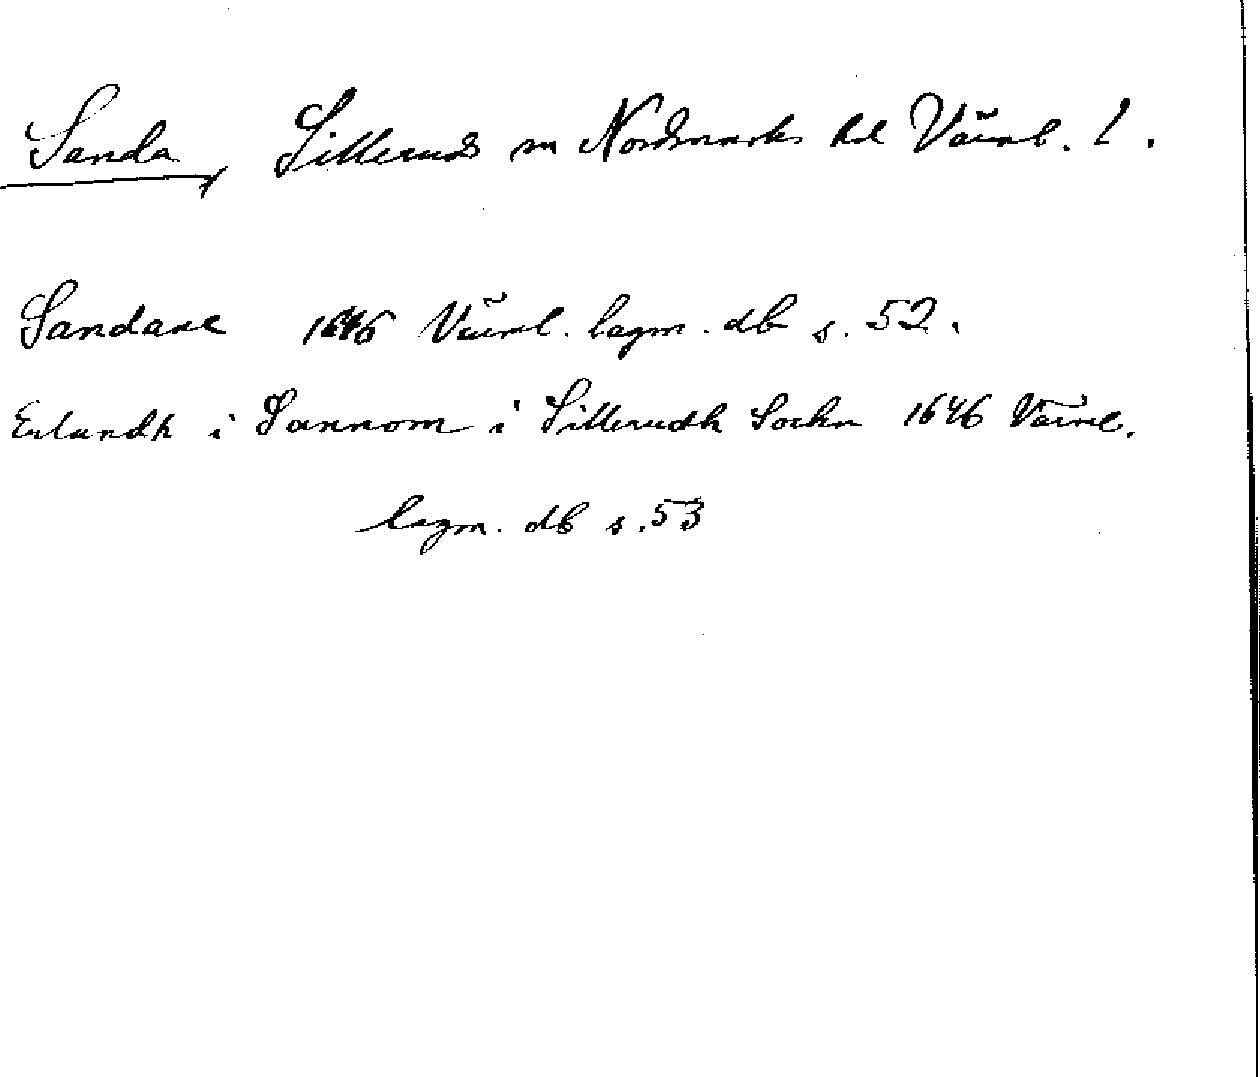 Sanda, Silleruds sn Nordmarks hd Värml. l.
Sandane 1646 Värml. lagm. db s. 52.
Erlandh i Sannom i Sillerudh Sochn 1646 Värml.
lagm. db s. 53